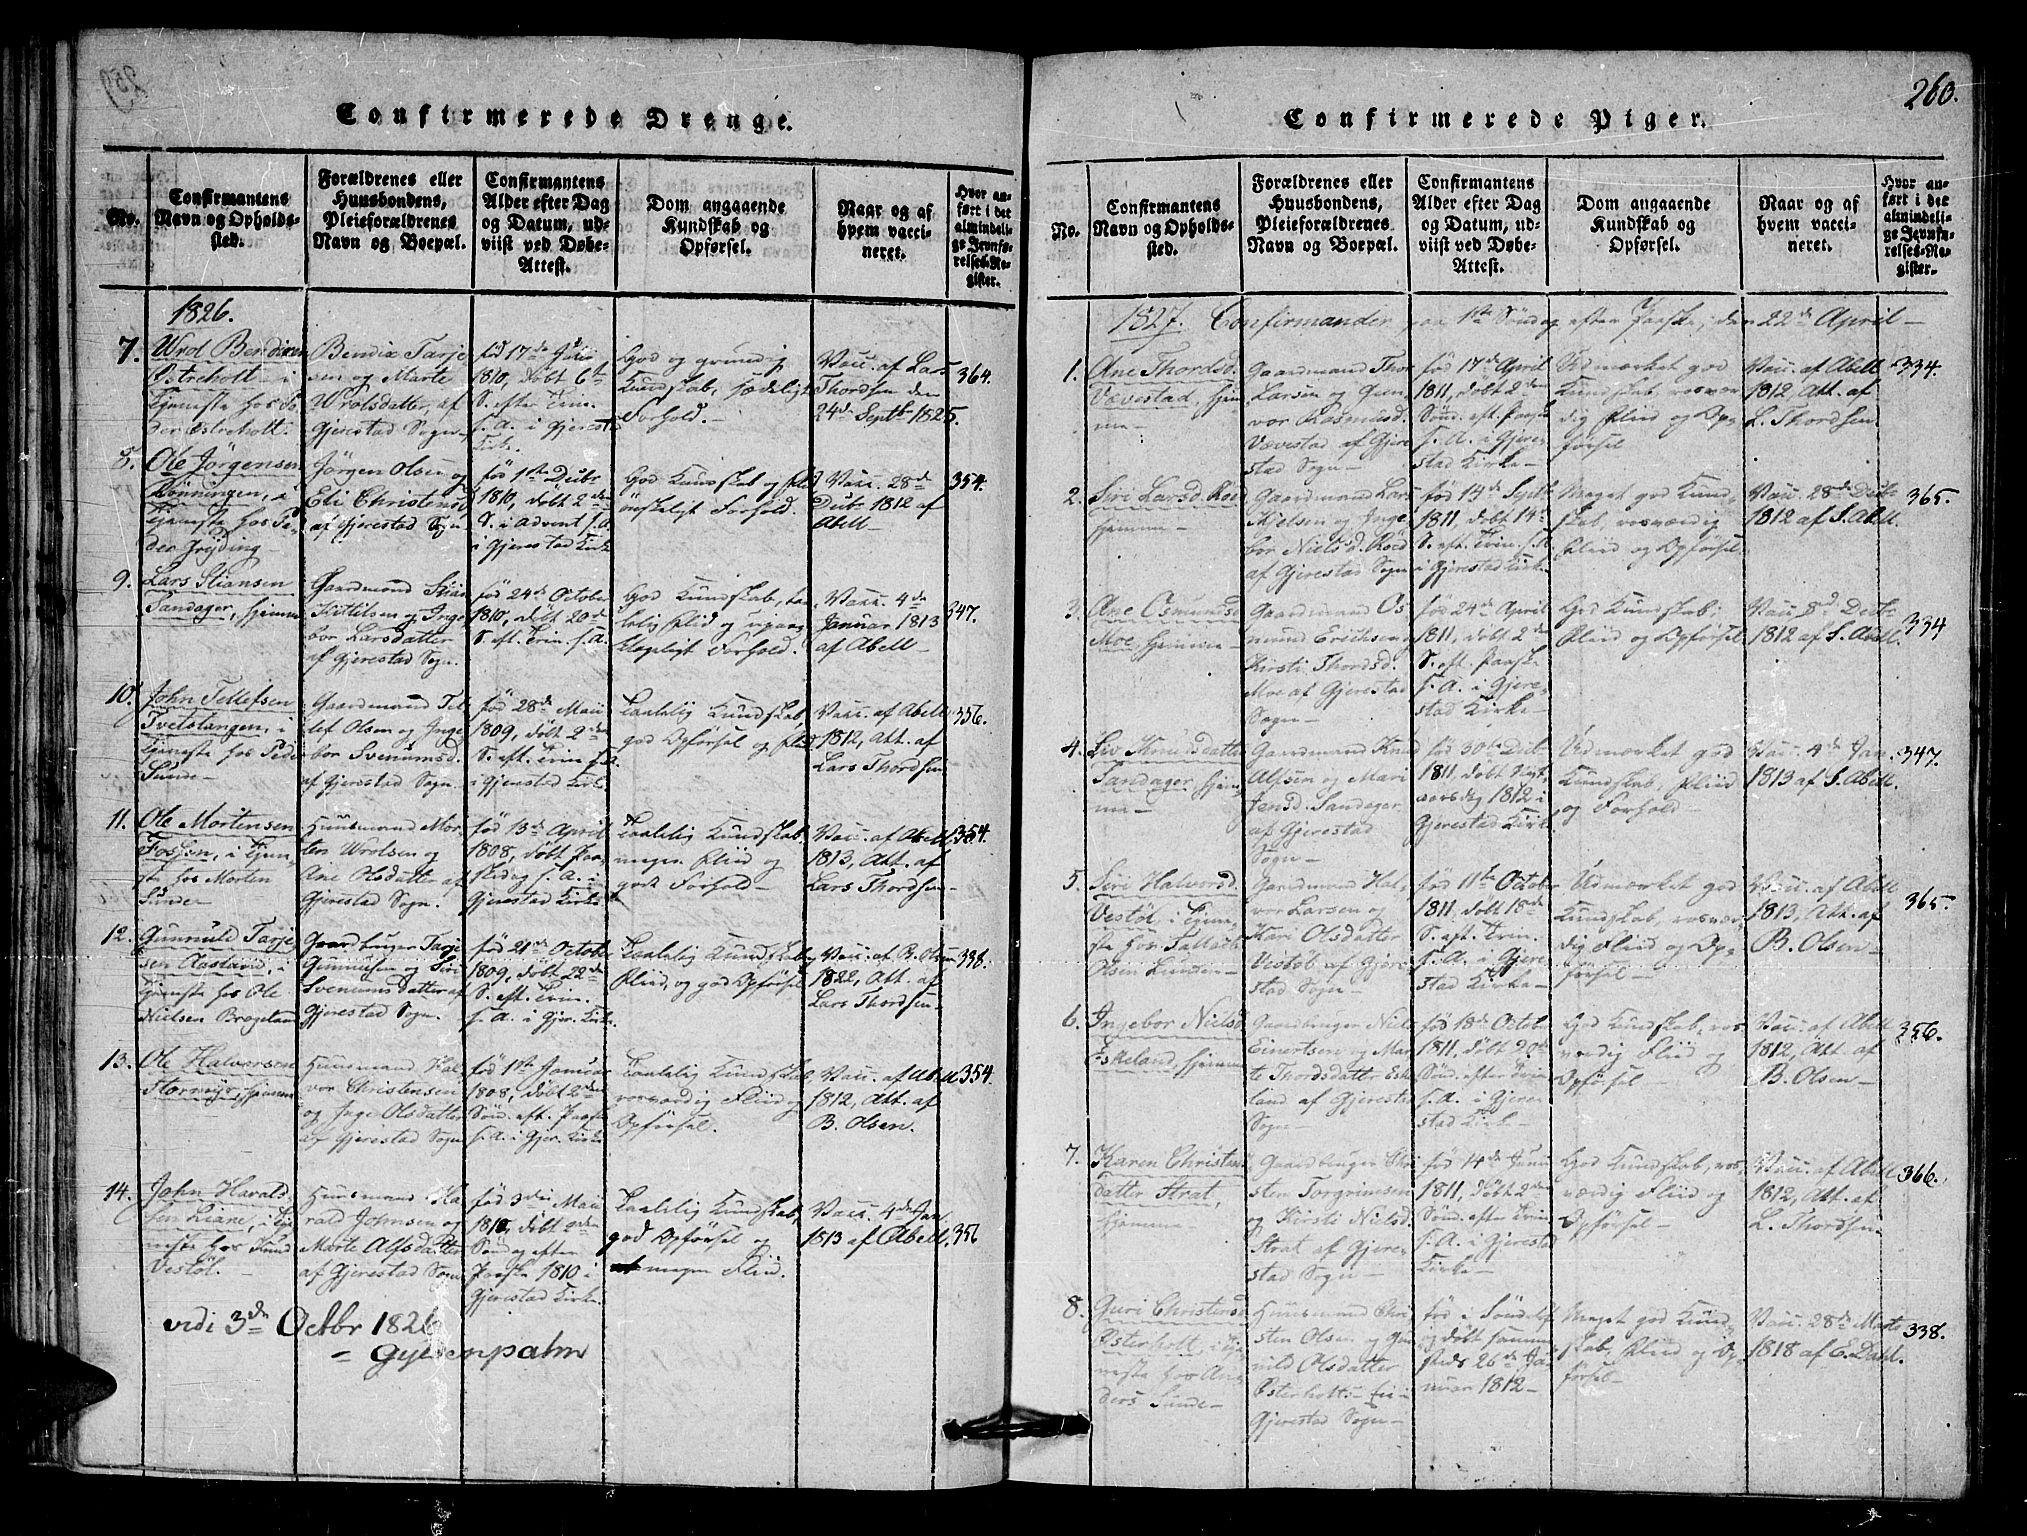 Confirmerede Drenge.
No.
Confirmantens
Navn og Opholds-
sted.
Forældrenes eller
Huusbondens,
Pleieforældrenes
Navn og Boepæl.
Confirmantens
Alder efter Dag
og Datum, ud-
viist ved Døbe-
Attest.
Dom angaaende
Kundskab og
Opførsel.
Naar og af
hvem vacci-
neret.
Hvor an-
ført i det
almindeli-
ge Jevnfø-
relses-Re-
gister.
1826.
7.
Wrol Bendixen
Østreholt i
Tjeneste hos
Østreholt.
Bendix Tarje
sen og Marte
Wrolsdatter, af
Gjerestad Sogn
født 17de
1810, døbt 6te
S. efter Trin.
S. A. i Gjerest
Kirke
God og grundig
Kundskab, sædeligt
Forhold.
Vacc. af Lars
Thordsen den
24de Septbr 1825.
364.
8.
Ole Jørgensen
Rønningen, i
Tjeneste hos Pe
der
Jørgen Olsen og
Eli Christensd
af Gjerestad Sogn
født 1ste Decbr
1810, døbt 2den
S. i Advent S. A.
i Gjerestad Kirke
God Kundskab og Flid
ønskeligt Forhold.
Vacc. 28de
Decbr 1812 af
Abell
354.
9.
Lars Stiansen
Sandager, hjemme
Gaardmand Stian
Kittilsen og Inge
bor Larsdatter
af Gjerestad Sogn.
født 24de October
1810, døbt 20de
S. eft. Trin. S. A.
God Kundskab,
Flid og upaa
klageligt Forhold.
Vacc. 4de
Januar 1813
af Abell
347.
10.
John Tellefsen
Tvetstangen, i
Tjeneste hos Peder
Sunde
Gaardmand Tel
lef Olsen og Inge
bor Svenumsd.
af Gjerestad Sogn.
født 28de Mai
1809, døbt 2den
S. eft. Trin S. A.
i Gjerestad Kirke
Taalelig Kundskab,
god Opførsel og Flid
Vacc. af Abell
1812, Att. af
Lars Thordsen
356.
11.
Ole Mortensen
Fossen, i Tjene
ste hos Morten
Sunde
Huusmand Mor
ten Wrolsen og
Ane Olsdatter af
Gjerestad Sogn.
født 13de April
1808, døbt Paa
skedag S. A. i
Gjerestad Kirke
Taalelig Kundskab,
megen Fliid og
godt Forhold
Vacc. af Abell
1813, Att. af
Lars Thordsen
354.
12.
Gunnuld Tarje
sen Aastavid, i
Tjeneste hos Ole
Nielsen Brøgeland
Gaardbruger Tarje
Gunnulsen og Siri
Svenumsdatter af
Gjerestad Sogn.
født 21de October
1809, døbt 22de
S. eft. Trin.
S. A. i Gjer. Kirke
Taalelig Kundskab
Fliid, og god Opførsel
Vacc. af B. Olsen
1822, Att. af
Lars Thordsen
338.
13.
Ole Halvorsen
Stormyr, hjemme
Huusmand Hal
vor Christensen
og Inge Olsdatter
af Gjerestad Sogn
født 1ste Januar
1808, døbt 2den
Sønd. eft. Paaske
S. A. i Gjer. Kirke
Taalelig Kundskab
rosværdig Fliid og
Opførsel.
Vacc. af Abell
1812, Att. af
B. Olsen.
354.
14.
John Harald
sen Liane, i Tje
neste hos Knud
Vestøl.
Huusmand Ha
rald Johnsen og
Marte Alfsdatter
af Gjerestad Sogn
født 3die Mai
1810, døbt 2den
Søndag efter
Paaske 1810 i
Gjerestad Kirke.
Taalelig Kundskab,
god Opførsel og
megen Fliid.
Vacc. 4de Jan
1813 af Abell.
356
vidi 3de Octbr 1826
Gyldenpalm
260.
Confirmerede Piger.
No.
Confirmantens
Navn og Opholds-
sted.
Forældrenes eller
Huusbondens,
Pleieforældrenes
Navn og Boepæl.
Confirmantens
Alder efter Dag
og Datum, ud-
viist ved Døbe-
Attest.
Dom angaaende
Kundskab og
Opførsel.
Naar og af
hvem vacci-
neret.
Hvor an-
ført i det
almindeli-
ge Jevnfø-
relses-Re-
gister.
1827. Confirmander paa 1ste Søndag efter Paaske, den 22de April
1.
Ane Thordsd.
Vævestad, hjem
me
Gaardmand Thor
Larsen og Gun
vor Rasmusd.
Vævestad af Gjere
stad Sogn
født 17de April
1811, døbt 2den
Sønd. eft. Paaske
S. A. i Gjere
stad Kirke
Udmærket god
Kundskab, rosvær
dig Fliid og Op
førsel
Vacc. af Abell
1812, Att. af
L. Thordsen
334.
2.
Siri Larsd. Røe
hjemme
Gaardmand Lars
Kjelsen og Inge
bor Nielsd. Røed
af Gjerestad Sogn
født 14de Septbr
1811, døbt 14de
S. eft. Trin. S. A.
i Gjerestad Kirke.
Meget god Kund
skab, rosværdig
Fliid og Opførsel
Vacc. 28de Decbr
1812 af S. Abell.
365.
3.
Ane Osmundsd
Moe, hjemme
Gaardmand Os
mund Eriksen og
Kirsti Thordsd.
Moe af Gjerestad
Sogn
født 24de April
1811, døbt 2den
S. eft. Paaske
S. A. i Gjere
stad Kirke
God Kundskab,
Fliid og Opførsel
Vacc. 8de Decbr
1812 af S. Abell
334
4.
Siv Knudsdatter
Sandager, hjem
me
Gaardmand Knud
Alfsen og Mari
Jensd. Sandager
af Gjerestad
Sogn
født 30te Decbr
1811, døbt Nyt
aarsdag 1812 i
Gjerestad Kirke
Udmærket god
Kundskab, Fliid
og Forhold
Vacc. 4de Jan
1813 af S. Abell.
347.
5.
Siri Halvorsd.
Vestøl, i Tjene
ste hos Tallack
Olsen Lunden
Gaardmand Hal
vor Larsen og
Kari Olsdatter
Vestøl af Gjere
stad Sogn
født 11te October
1811, døbt 18de
S. eft. Trin.
S. A. i Gjere
stad Kirke
Udmærket god
Kundskab, rosvær
dig Fliid og Op
førsel
Vacc. af Abell
1813, Att. af
B. Olsen
365.
6.
Ingebor Nielsd
Eskeland, hjemme
Gaardbruger Niels
Einertsen og Mar
te Thordsdatter Eske
land af Gjerestad
Sogn
født 18de October
1811, døbt 20de
Sønd. efter Trin
S. A. i Gjere
stad Kirke
God Kundskab, ros
værdig Fliid og
Opførsel
Vacc. af Abell
1812, Att. af
B. Olsen
356.
7.
Karen Christens
datter Strat,
hjemme
Gaardbruger Chri
sten Torgrimsen
og Kirsti Nielsd.
Strat af Gjere
stad Sogn
født 14de Juni
1811, døbt 2den
Sønd. efter Trin
S. A. i Gjerestad
Kirke
God Kundskab, ros
værdig Fliid og
Opførsel
Vacc. af Abell
1812, Att. af
L. Thordsen
366.
8.
Guri Christensd
Østerholt, i Tje
neste hos An
ders Sunde
Huusmand Chri
sten Olsen og Gun
nild Olsdatter
Østerholts Eie i
Gjerestad Sogn
født i Søndelef
og døbt samme
steds 26de Ja
nuar 1812
Meget god Kund
skab, Fliid og Op
førsel
Vacc. 28de Marts
1818 af E. Dahl.
338.